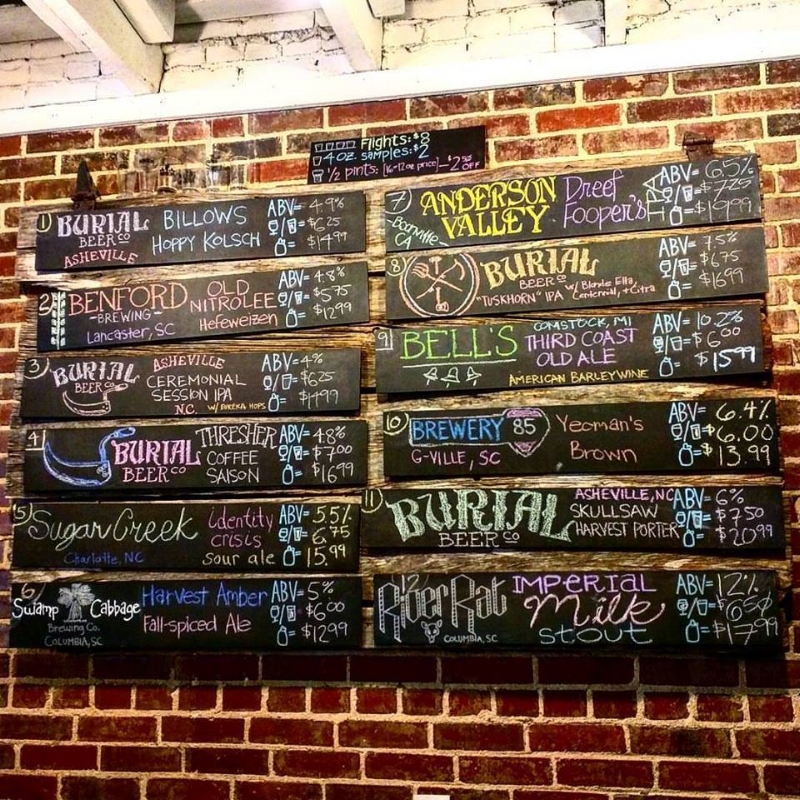 Flights: $8
4oz samples: $2
1/2 pints: (16-12oz price) - 2.50 OFF
1) BURIAL BEER CO ASHEVILLE
BILLOWS HOPPY KOLSCH
ABV= 4.9%
$6.25
= $14.99
2) BENFORD -BREWING- Lancaster, SC
OLD NITROLEE Hefeweizen
ABV= 4.8%
$5.75
= $12.99
3) BURIAL BEER CO
ASHEVILLE
CEREMONIAL SESSION IPA
N.C. W/ EUREKA HOPS
ABV= 4%
$6.25
= $14.99
4) BURIAL BEER CO
THRESHER COFFEE SAISON
ABV= 4.8%
$7.00
= $16.99
5) Sugar Creek Charlotte, NC
identity crisis sour ale
ABV= 5.5%
= 6.75
= 15.99
6) Swamp Cabbage Brewing Co. COLUMBIA, SC
Harvest Amber
Fall-spiced Ale
ABV= 5%
= $6.00
= $12.99
7) ANDERSON VALLEY
Boonville, CA
Dreef Fooper's IPA
ABV= 6.5%
$7.25
= $19.99
8) BURIAL BEER CO
"TUSKHORN" IPA w/ Blonde Ella, Centennial, + Citra
ABV= 7.5%
$6.75
= $16.99
9) BELL'S
COMSTOCK, MI
THIRD COAST OLD ALE
AMERICAN BARLEYWINE
ABV= 10.2%
$6.00
= $15.99
10) BREWERY 85
G-VILLE, SC
Yeoman's Brown
ABV= 6.4%
$6.00
= $13.99
11) BURIAL BEER CO
ASHEVILLE, NC
SKULLSAW HARVEST PORTER
ABV= 6%
= $7.50
= $20.99
12) River Rat COLUMBIA, SC
IMPERIAL Milk stout
ABV= 12%
= $17.99